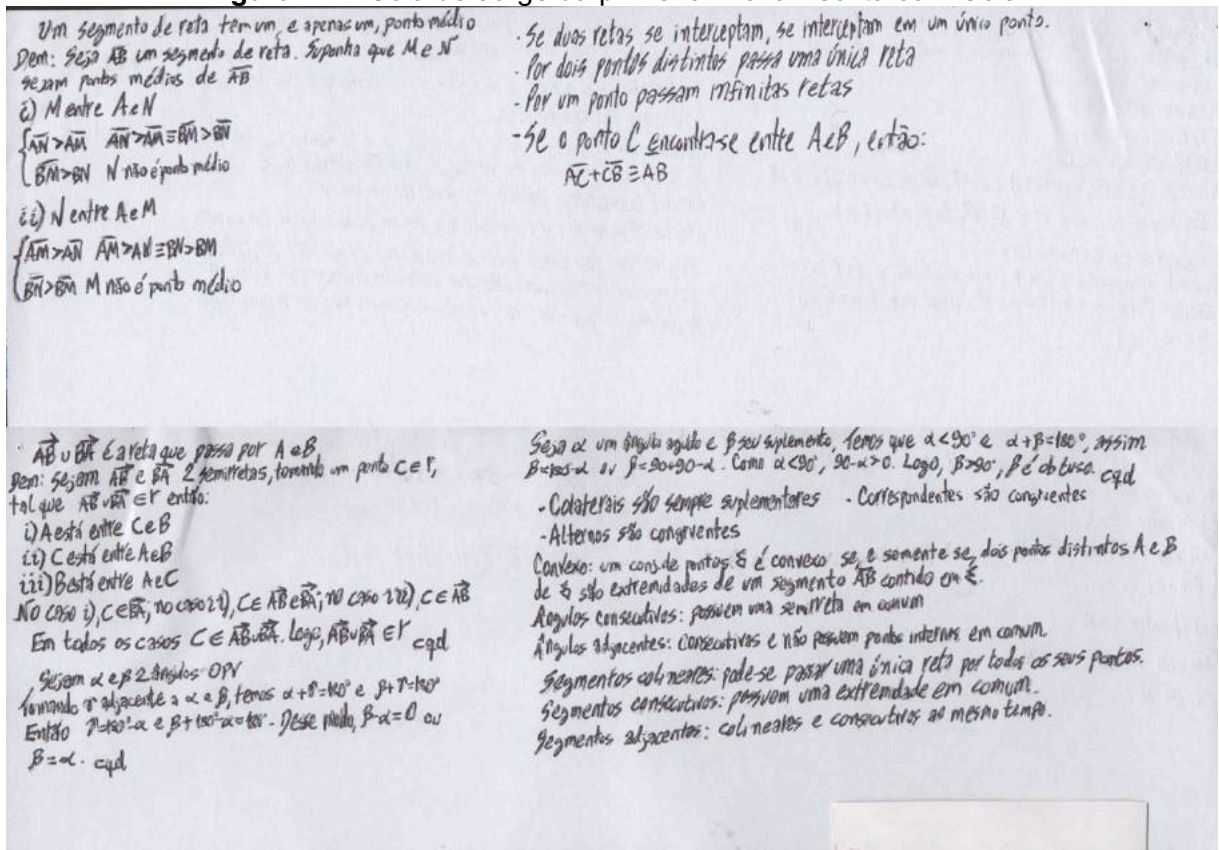 Um segmento de reta tem um, e apenas um, ponto médio
Dem: Seja AB um segmento de reta. Suponha que M e N
sejam pontos médios de AB
i) M entre A e N
AN>AM AN>AM≡BM>BN
BM>BN N não é ponto médio
ii) N entre A e M
AM>AN AM>AN≡BN>BM
BN>BM M não é ponto médio
- Se duas retas se interceptam, se interceptam em um único ponto.
- Por dois pontos distintos passa uma única reta
- Por um ponto passam infinitas retas
- Se o ponto C encontra-se entre A e B, então:
AC+CB≡AB
AB∪BA é a reta que passa por A e B.
Dem: Sejam AB e BA 2 semirretas, tomando um ponto C∈r,
tal que AB∪BA∈r então:
i) A está entre C e B
ii) C está entre A e B
iii) B está entre A e C
No caso i), C∈BA; no caso ii), C∈AB e BA; no caso iii), C∈AB
Em todos os casos C∈AB∪BA. Logo, AB∪BA∈r cqd
Sejam α e β 2 ângulos OPV
Tomando γ adjacente a α e β, temos α+γ=180° e β+γ=180°
Então γ=180°-α e β+180°-α=180°. Desse modo, β-α=0 ou
β=α. cqd
Seja α um ângulo agudo e β seu suplemento, temos que α<90° e α+β=180°, assim
β=180-α ou β=90+90-α. Como α<90°, 90-α>0. Logo, β>90°, β é obtuso. cqd
- Colaterais são sempre suplementares - Correspondentes são congruentes
- Alternos são congruentes
Convexo: um conj. de pontos é convexo se, e somente se, dois pontos distintos A e B
de são extremidades de um segmento AB contido em
Ângulos consecutivos: possuem uma semirreta em comum
Ângulos adjacentes: consecutivos e não possuem pontos internos em comum.
Segmentos colineares: pode-se passar uma única reta por todos os seus pontos.
Segmentos consecutivos: possuem uma extremidade em comum.
Segmentos adjacentes: colineares e consecutivos ao mesmo tempo.